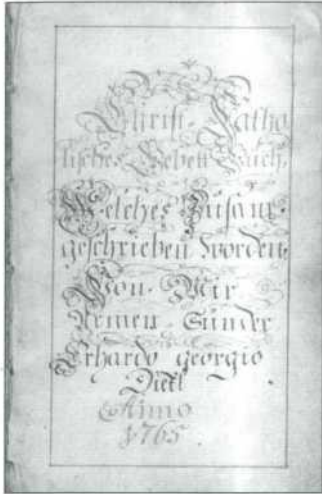 Christ-Catho
lisches Gebett Buch,
Welches Zusam͞
geschrieben worden
Von Mir
Armen Sünder
Erhardo georgio
Dietl
Anno
1765